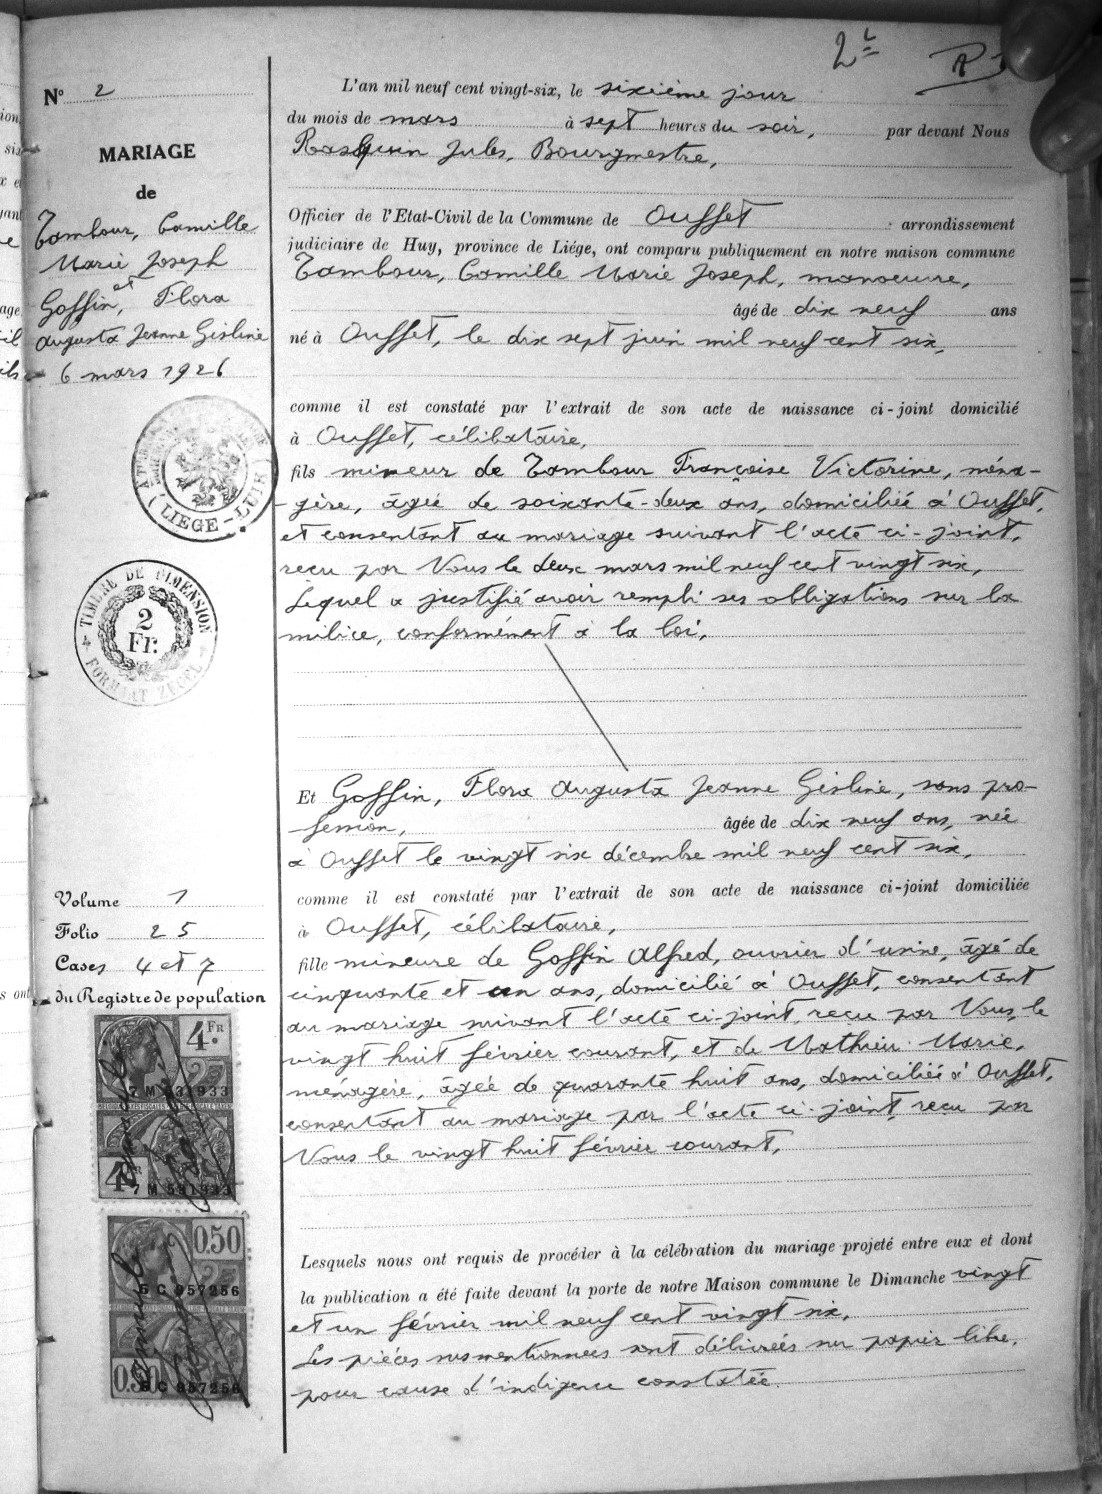 2
N° 2
MARIAGE
de
Tambour, Camille
Marie Joseph
et
Goffin, Flora
Augusta Jeanne Gisline
6 mars 1926
(LIEGE-LUIK)
TIMBRE DE DIMENSION
2
Fr.
FORMAT ZEGEL
Volume 1
Folio 25
Cases 4 et 7
du Registre de population
4 FR
7 M 531933
4 FR
7 M 531933
0.50
5 C 957256
0.50
5 C 957256
L'an mil neuf cent vingt-six, le sixième jour
du mois de mars à sept heures du soir, par devant Nous
Rasquin Jules, Bourgmestre,
Officier de l'Etat-Civil de la Commune de Ouffet : arrondissement
judiciaire de Huy, province de Liége, ont comparu publiquement en notre maison commune
Tambour, Camille Marie Joseph, manoeuvre,
âgé de dix neuf ans
né à Ouffet, le dix sept juin mil neuf cent six,
comme il est constaté par l'extrait de son acte de naissance ci-joint domicilié
à Ouffet, célibataire,
fils mineur de Tambour Françoise Victorine, ména-
-gère, âgée de soixante-deux ans, domiciliée à Ouffet,
et consentant au mariage suivant l'acte ci-joint,
reçu par Nous le deux mars mil neuf cent vingt six,
Lequel a justifié avoir rempli ses obligations sur la
milice, conformément à la loi.
Et Goffin, Flora Augusta Jeanne Gisline, sans pro-
-fession, âgée de dix neuf ans, née
à Ouffet le vingt six décembre mil neuf cent six,
comme il est constaté par l'extrait de son acte de naissance ci-joint domiciliée
à Ouffet, célibataire,
fille mineure de Goffin Alfred, ouvrier d'usine, âgé de
cinquante et un ans, domicilié à Ouffet, consentant
au mariage suivant l'acte ci-joint, reçu par Nous, le
vingt huit février courant, et de Mathieu Marie,
ménagère, âgée de quarante huit ans, domiciliée à Ouffet,
consentant au mariage par l'acte ci-joint, reçu par
Nous le vingt huit février courant,
Lesquels nous ont requis de procéder à la célébration du mariage projeté entre eux et dont
la publication a été faite devant la porte de notre Maison commune le Dimanche vingt
et un février mil neuf cent vingt six.
Les pièces susmentionnées sont délivrées sur papier libre,
pour cause d'indigence constatée.